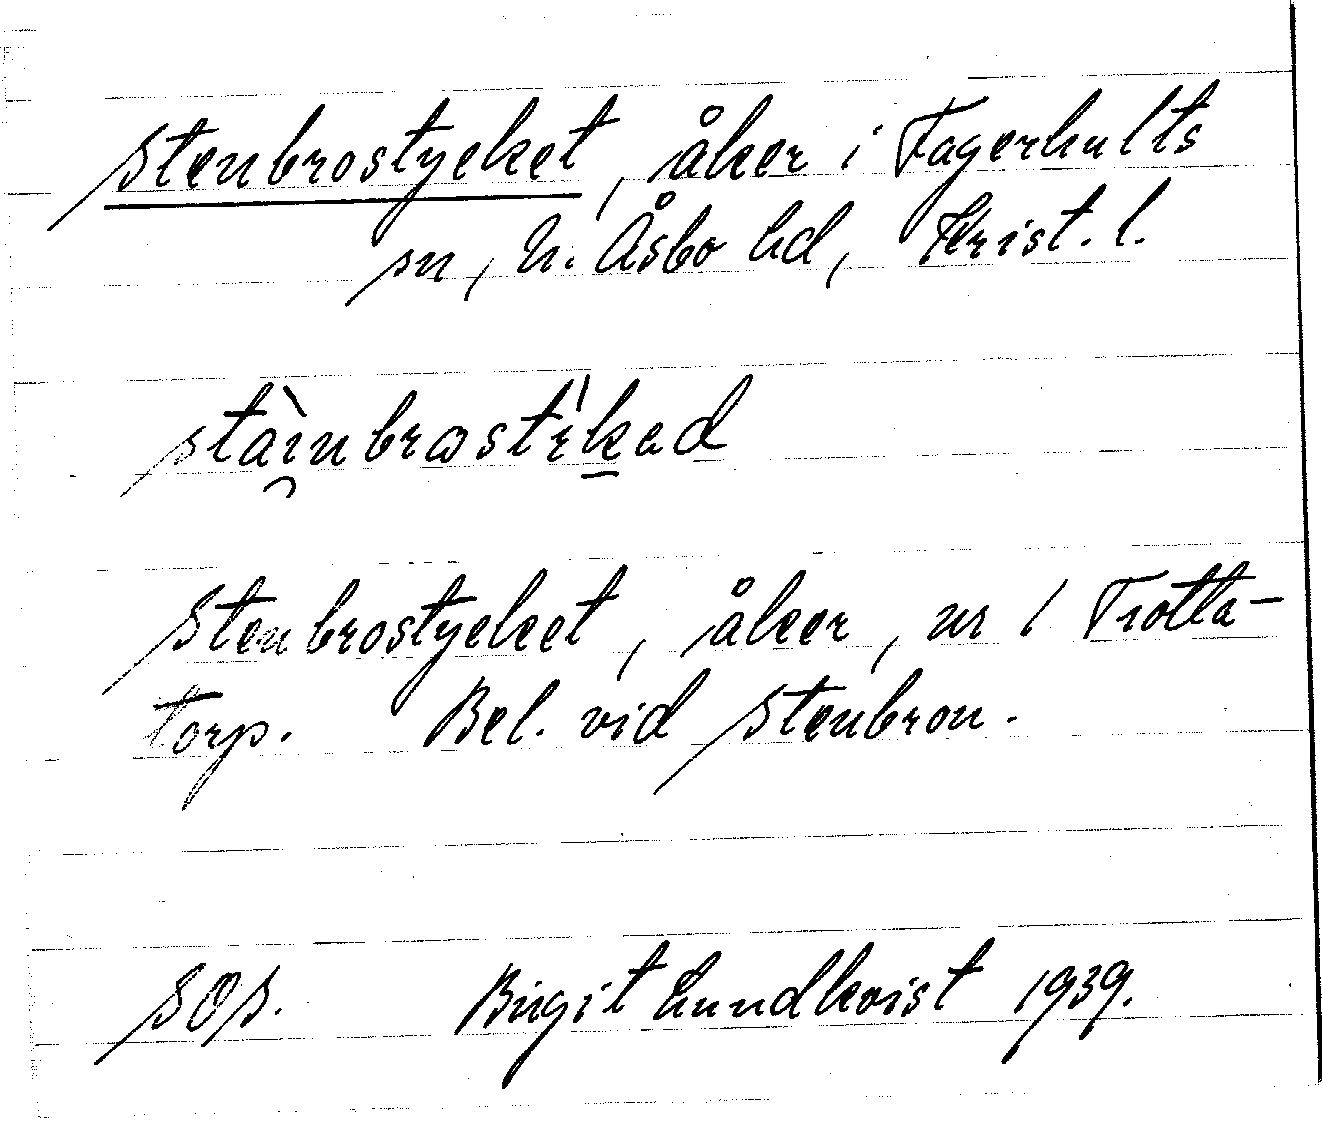 Stenbrostycket, åker i Fagerhults
sn, N. Åsbo hd, Krist. l.
stàinbrostìkad
Stenbrostycket, åker, nr 1 Trotta-
torp. Bel. vid Stenbron.
SOS. Birgit Lundkvist 1939.